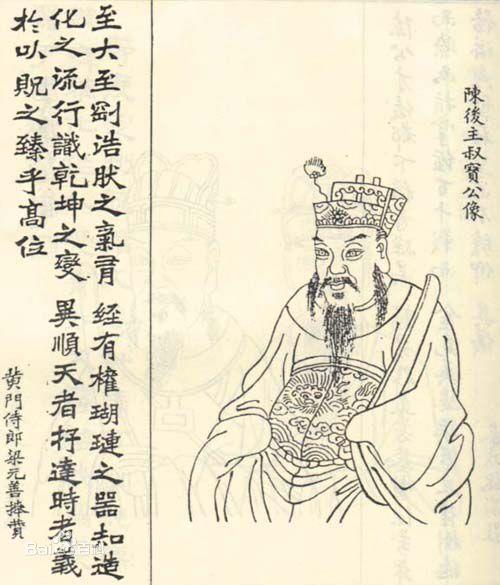 陳後主叔寶公像
至大至剛浩肰之氣有 經有權瑚璉之器知造
化之流行識乾坤之變 異順天者存達時者義
於以貺之臻乎高位
黃門侍郎梁元善撰贊